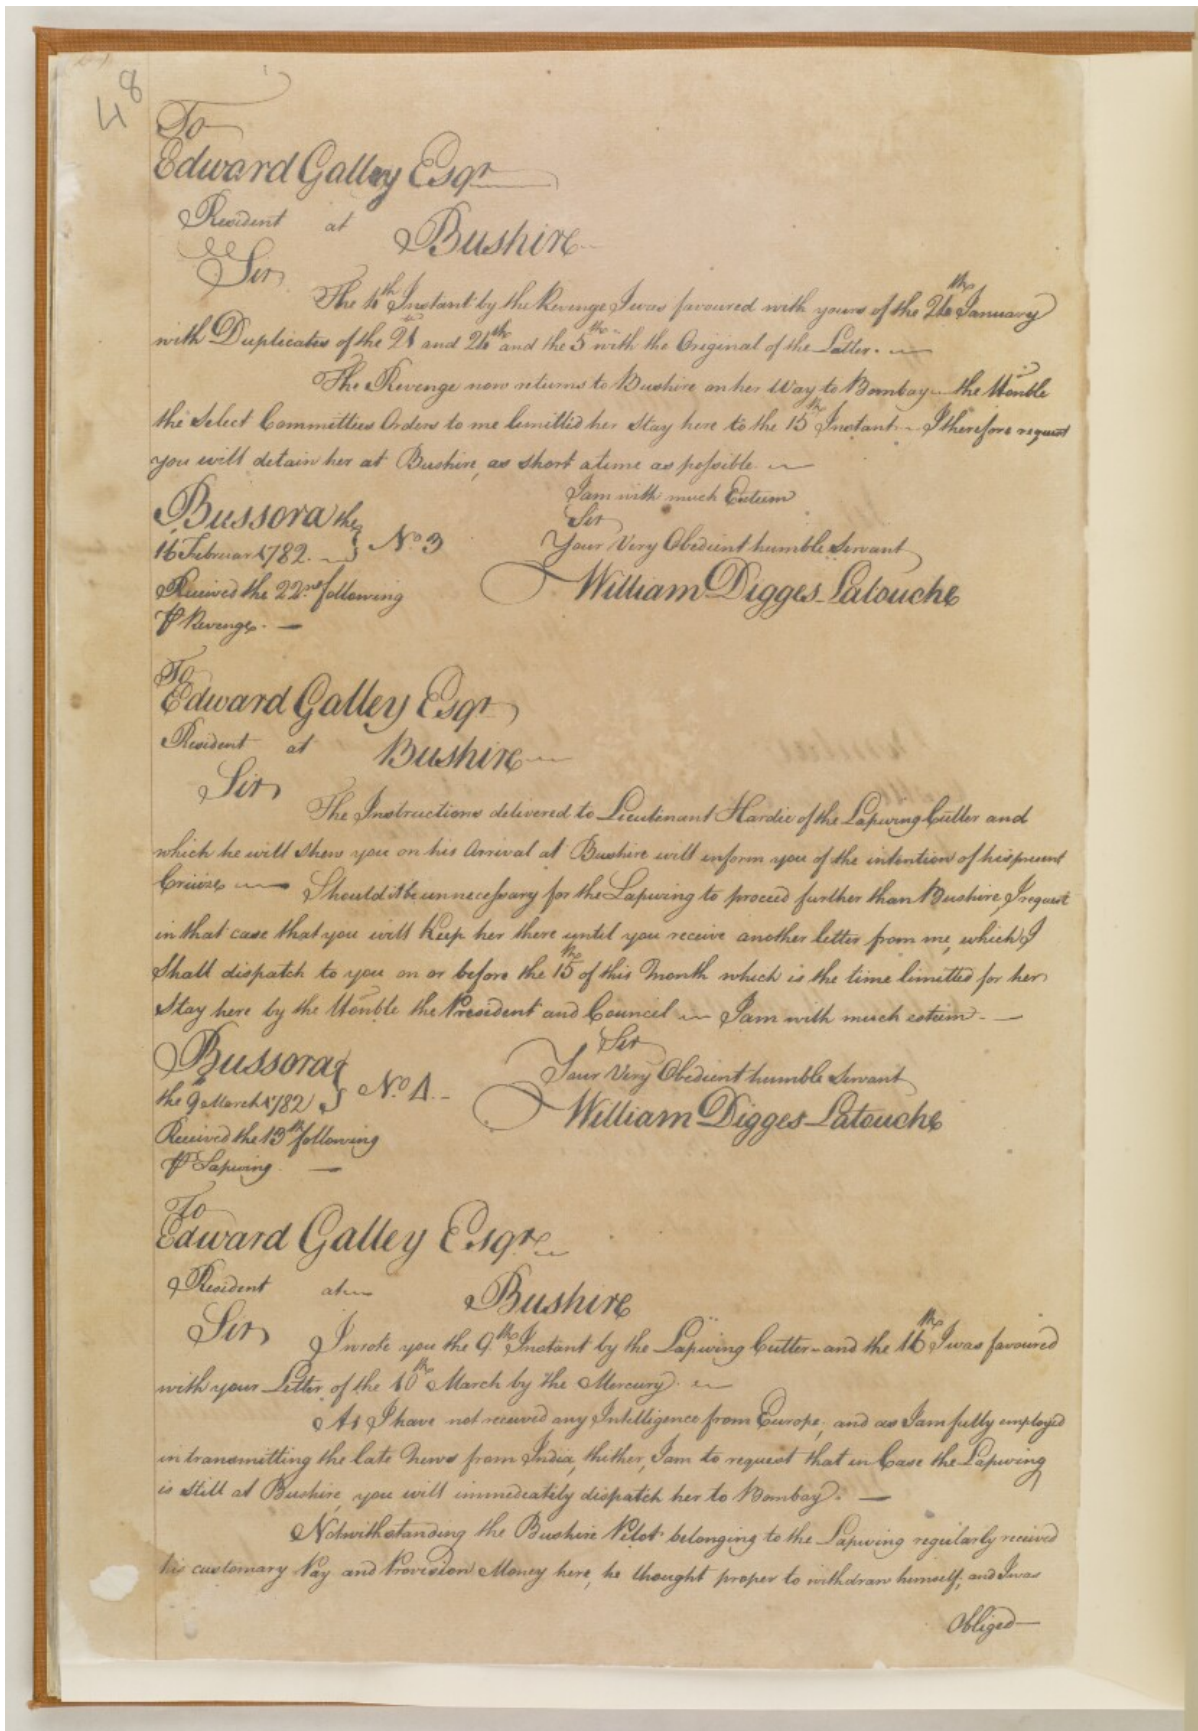 48
To
Edward Galley Esqr
Resident at Bushire
Sir
The 4th Instant by the Revenge I was favoured with yours of the 26th January
with Duplicates of the 21 and 26th and the 5th with the Original of the Latter.
The Revenge now returns to Bushire on her Way to Bombay the Honble
the Select Committees Orders to me limitted her Stay here to the 15th Instant I therefore request
you will detain her at Bushire, as short a time as possible.
I am with much Esteem
Sir
Bussora the
16 February 1782. No. 3
Your Very Obedient humble Servant
William Digges Latouche
Received the 22nd following
Pr Revenge.
To
Edward Galley Esqr
Resident at Bushire
Sir
The Instructions delivered to Lieutenant Hardie of the Lapwing Cutter and
which he will shew you on his Arrival at Bushire will inform you of the intention of his present
Cruize Should it be unnecessary for the Lapwing to proceed further than Bushire, I request
in that case that you will Keep her there until you receive another letter from me, which I
Shall dispatch to you on or before the 15th of this Month which is the time limitted for her
Stay here by the Honble the President and Council I am with much esteem.
Sir
Bussora
the 9 March 1782 No. 4.
Your Very Obedient humble Servant
William Digges Latouche
Received the 13th following
Pr Lapwing.
To
Edward Galley Esqre
Resident at Bushire
Sir I wrote you the 9th Instant by the Lapwing Cutter and the 16th I was favoured
with your Letter of the 10th March by the Mercury.
As I have not received any Intelligence from Europe, and as I am fully employed
in transmitting the late News from India, thither, I am to request that in Case the Lapwing
is still at Bushire, you will immediately dispatch her to Bombay.
Notwithstanding the Bushire Pilot belonging to the Lapwing regularly received
his customary Pay and Provision Money here, he thought proper to withdraw himself; and I was
Obliged